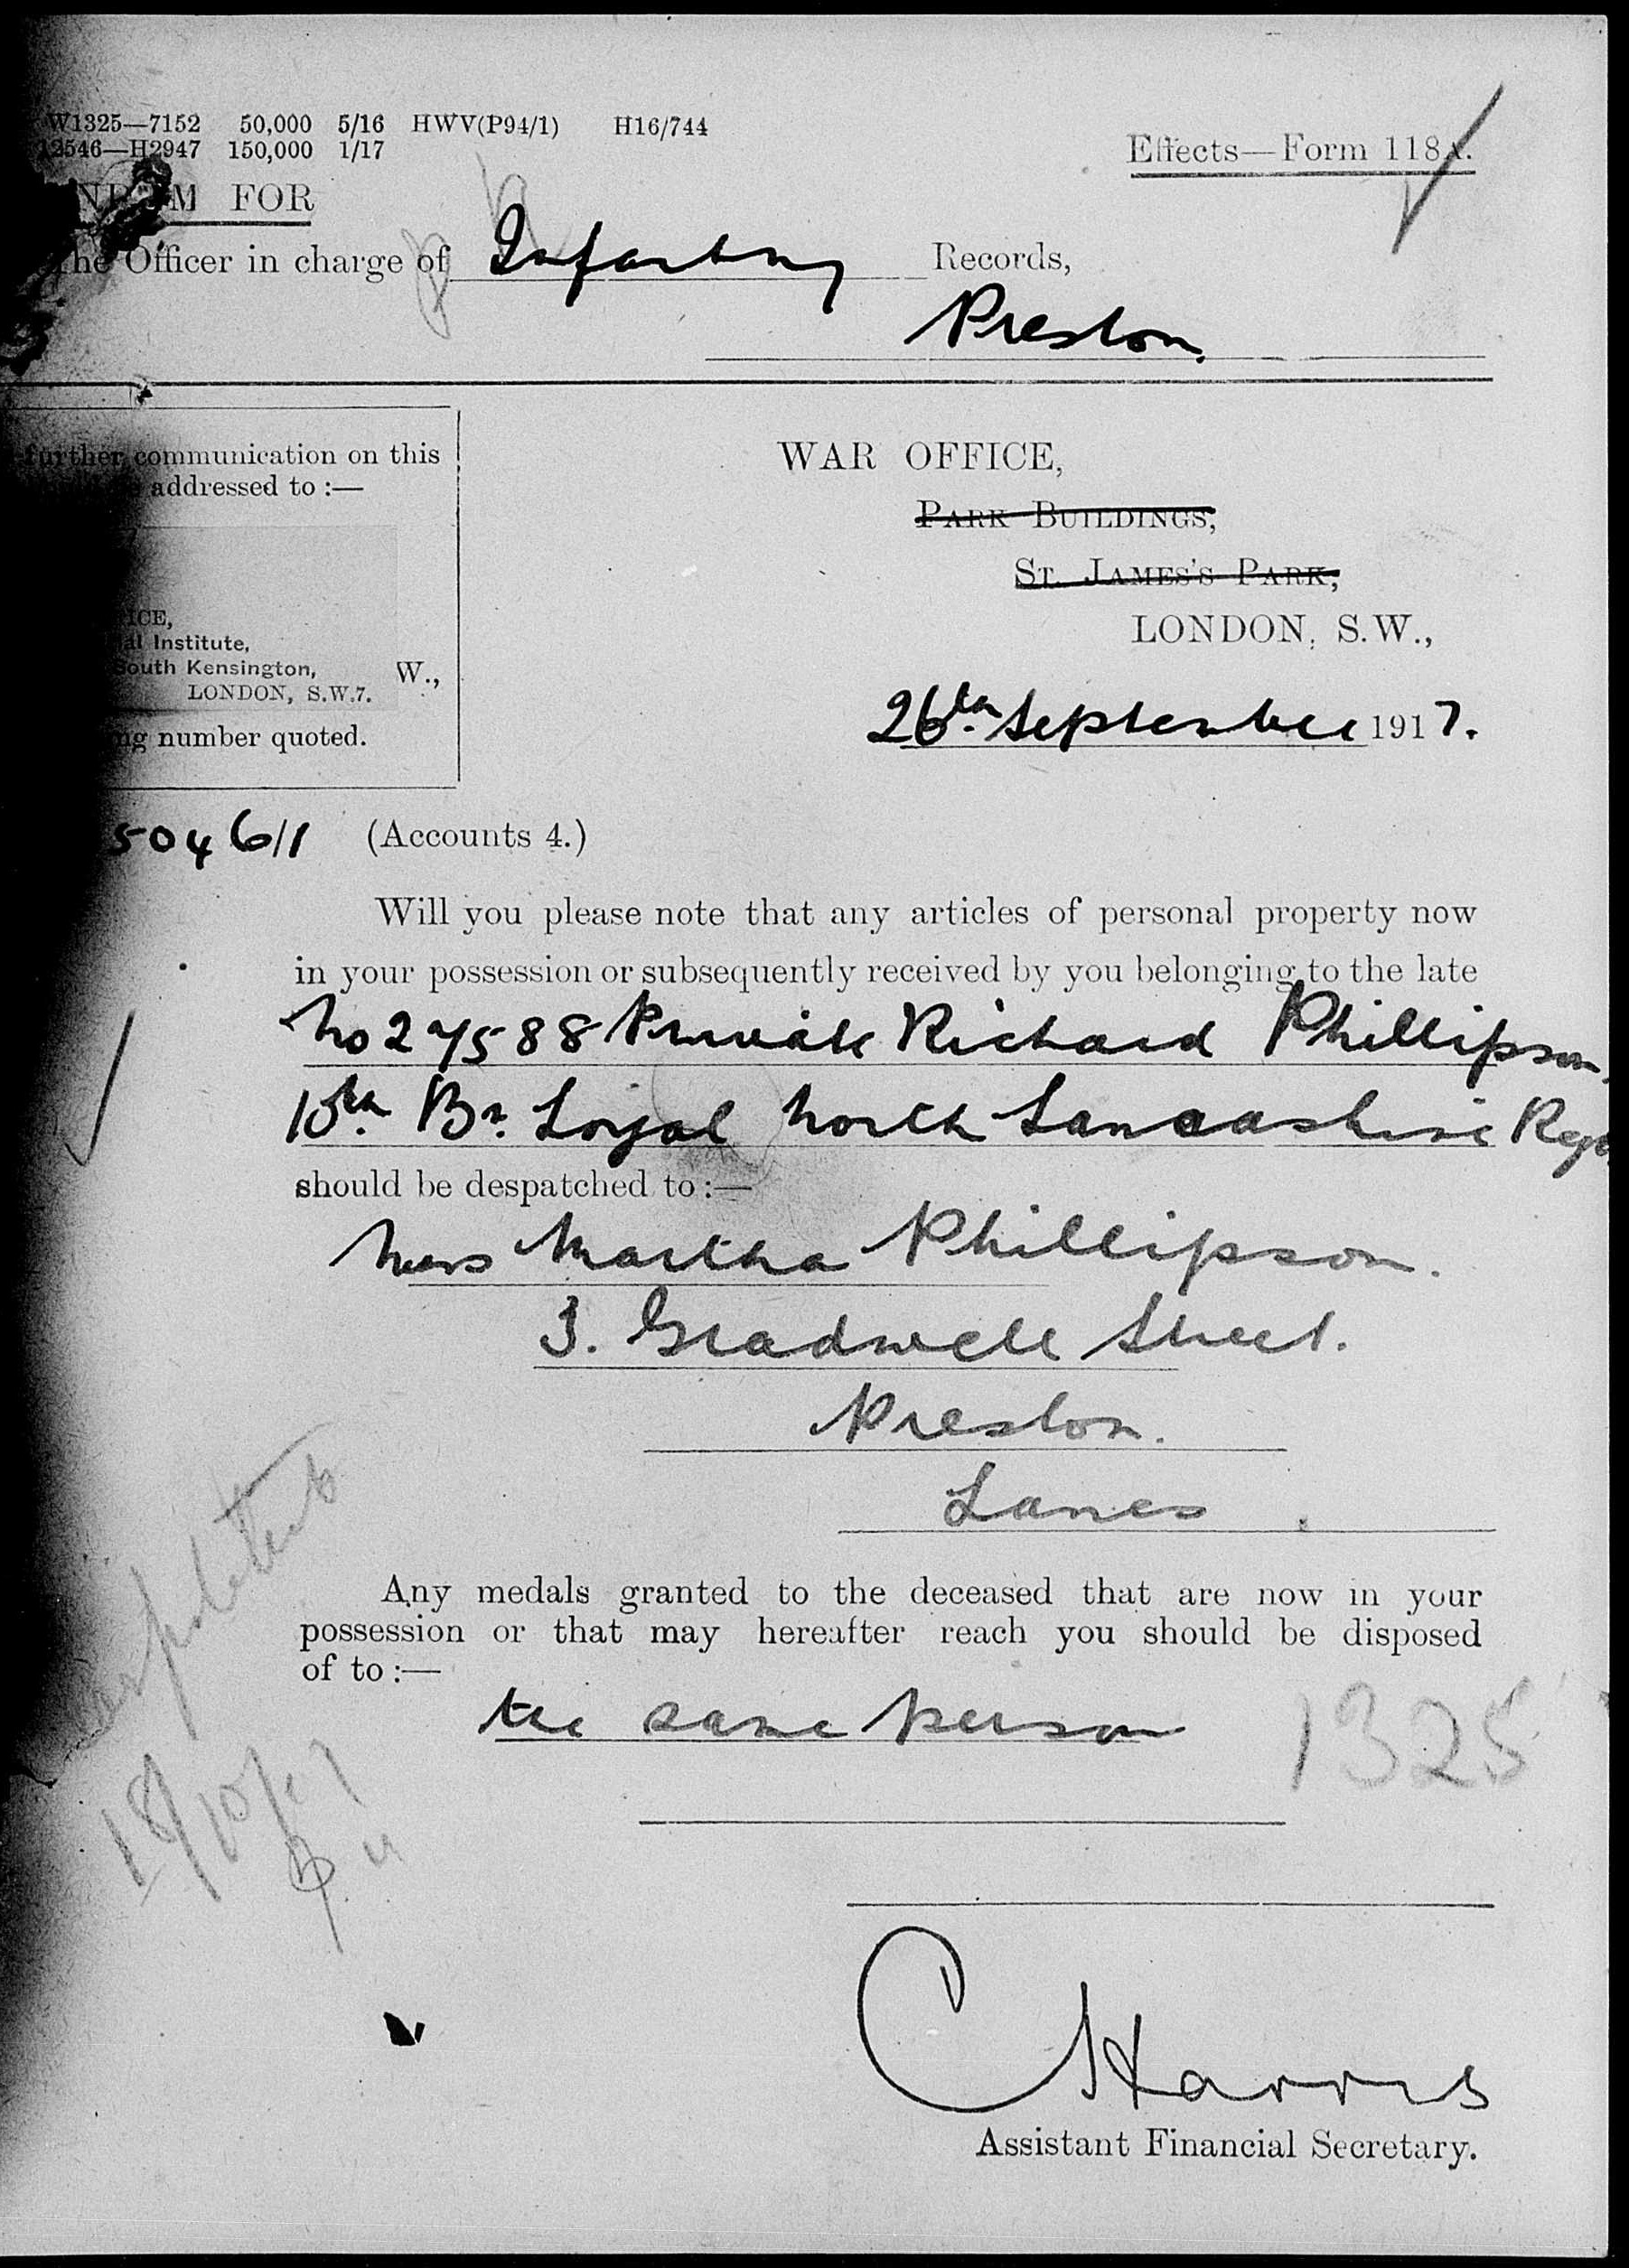 W1325—7152 50,000 5/16 HWV(P94/1) H16/744
12546—H2947 150,000 1/17
Effects—Form 118A.
FOR
The Officer in charge of Infantry Records,
Preston.
further communication on this
addressed to :—
Institute,
South Kensington, W.,
LONDON, S.W.7.
number quoted.
WAR OFFICE,
PARK BUILDINGS,
ST. JAMES'S PARK,
LONDON, S.W.,
26th September 1917.
5046/1 (Accounts 4.)
Will you please note that any articles of personal property now
in your possession or subsequently received by you belonging to the late
No 27588 Private Richard Phillipson.
Bn. Loyal North Lancashire Regt
should be despatched to :—
Mrs Martha Phillipson.
3. Gradwell Street.
Preston.
Lancs.
Any medals granted to the deceased that are now in your
possession or that may hereafter reach you should be disposed
of to :—
the same person
1325
18/10/17
C Harris
Assistant Financial Secretary.